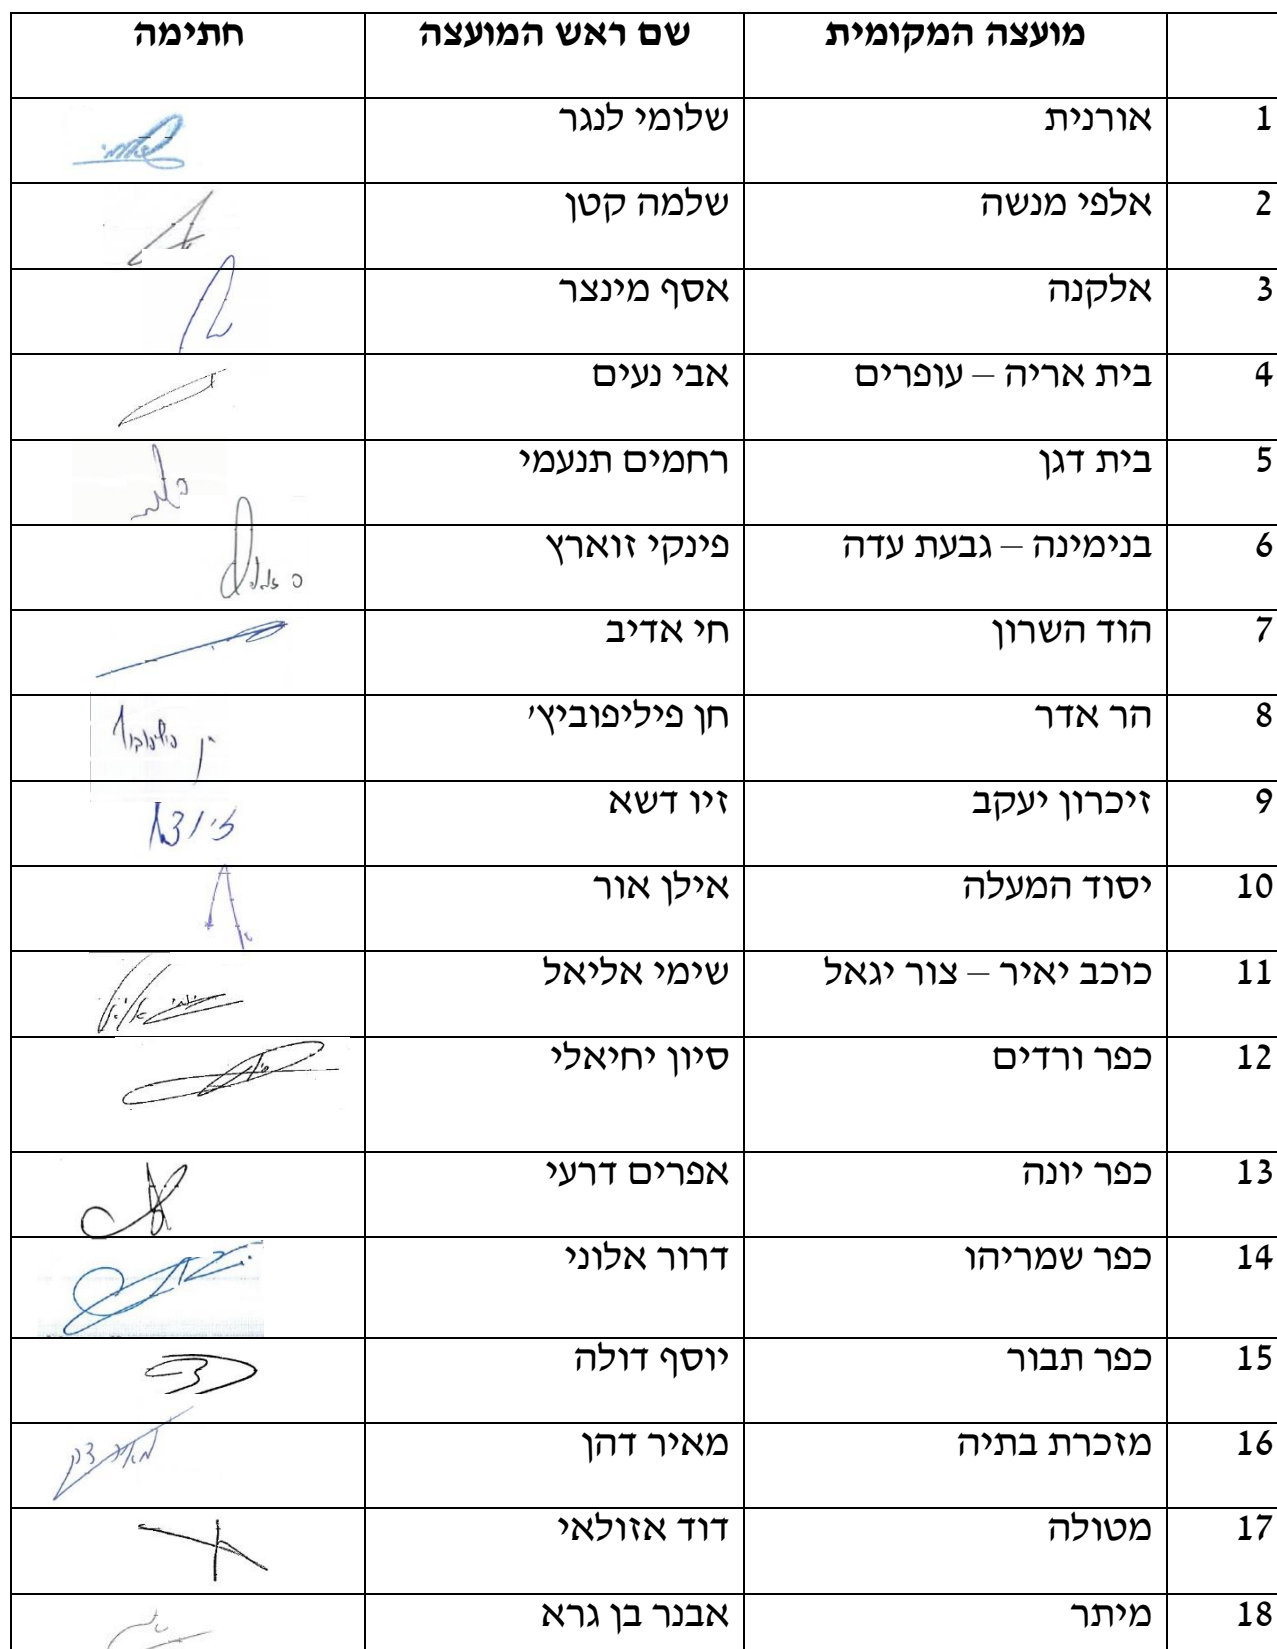 מועצה המקומית שם ראש המועצה חתימה
1 אורנית שלומי לנגר
2 אלפי מנשה שלמה קטן
3 אלקנה אסף מינצר
4 בית אריה – עופרים אבי נעים
5 בית דגן רחמים תנעמי
6 בנימינה – גבעת עדה פינקי זוארץ
7 הוד השרון חי אדיב
8 הר אדר חן פיליפוביץ'
9 זיכרון יעקב זיו דשא
10 יסוד המעלה אילן אור
11 כוכב יאיר – צור יגאל שימי אליאל
12 כפר ורדים סיון יחיאלי
13 כפר יונה אפרים דרעי
14 כפר שמריהו דרור אלוני
15 כפר תבור יוסף דולה
16 מזכרת בתיה מאיר דהן
17 מטולה דוד אזולאי
18 מיתר אבנר בן גרא